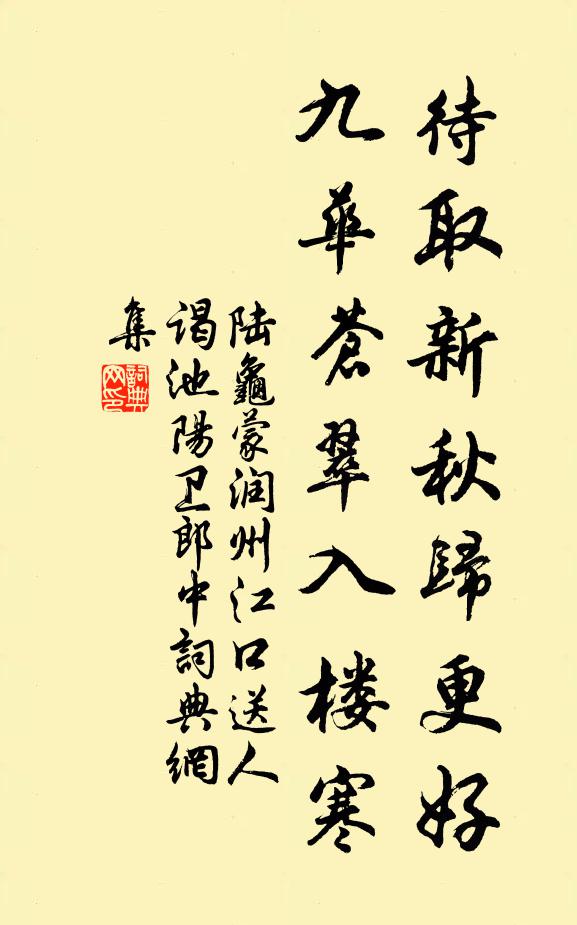 待取新秋歸更好
九華蒼翠入楼寒
陆龜蒙润州江口送人
谒池陽卫郎中詞典網
集
詞典
网印